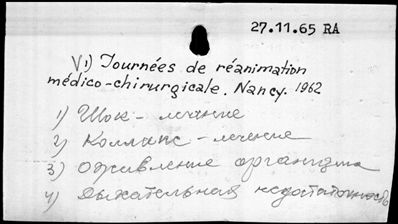 27.11.65 RA
VI) Journées de réanimation
médico-chirurgicale. Nancy. 1962
1) Шок - лечение
2) Коллапс - лечение
3) Оживление организма
4) Дыхательная недостаточность